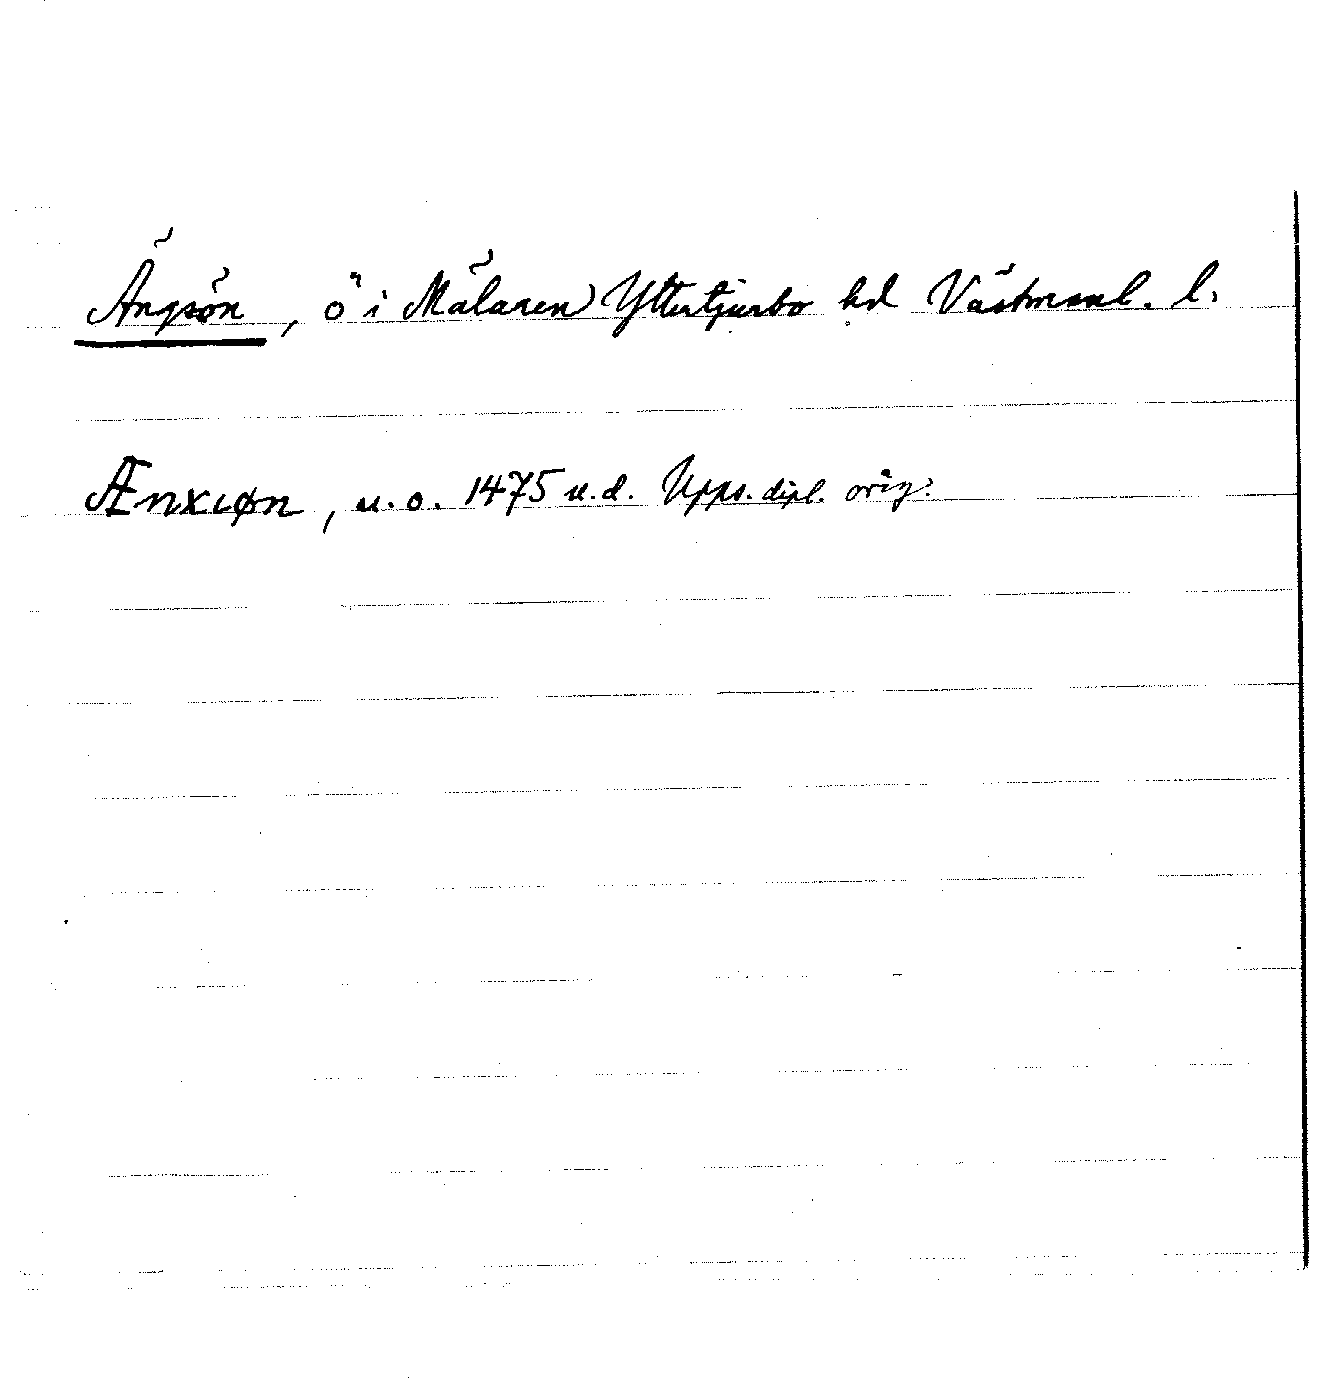 Ängsön, ö i Mälaren) Yttertjurbo hd Västmanl. l.
Ænxiøn, u.o. 1475 u.d. Upps. dipl. orig.